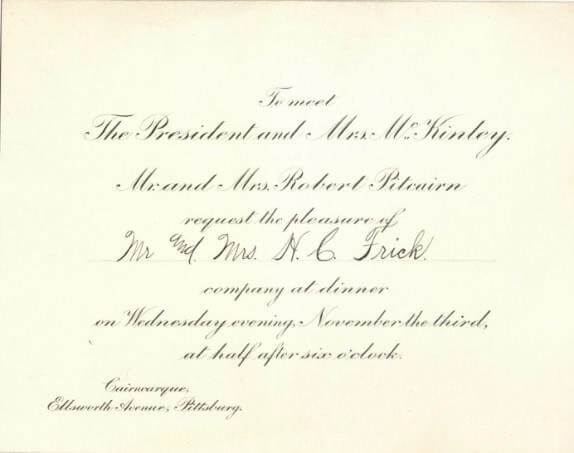 To meet
The President and Mrs. McKinley.
Mr. and Mrs. Robert Pitcairn
request the pleasure of
Mr and. Mrs. H. C. Frick.
company at dinner
on Wednesday evening, November the third,
at half after six o'clock.
Cairncarque,
Ellsworth Avenue, Pittsburg.